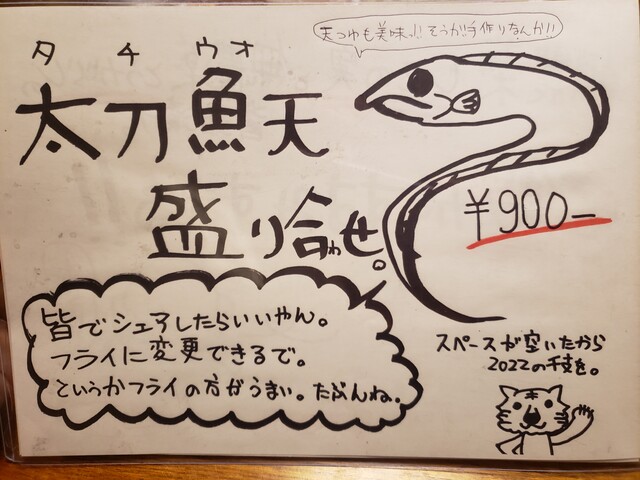 天つゆも美味っ!! そうか!手作りなんか!!
タチウオ
太刀魚天
盛り合わせ。
¥900-
皆でシェアしたらいいやん。
フライに変更できるで。
というかフライの方がうまい。たぶんね。
スペースが空いたから
2022の干支を。